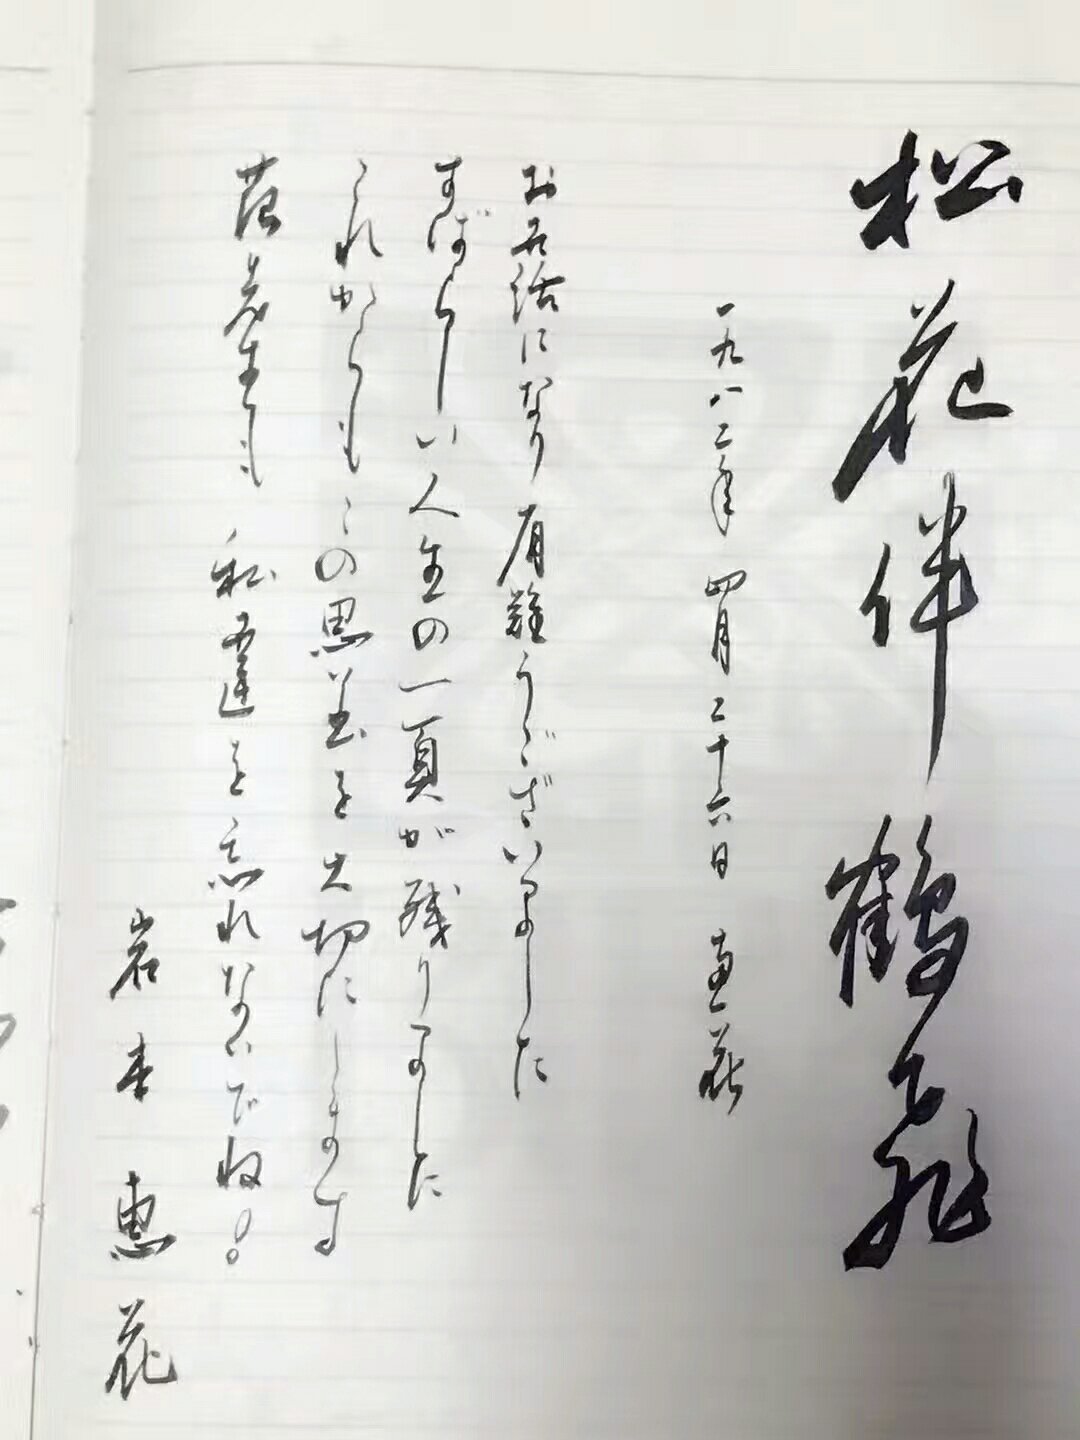 松花伴鶴飛
一九八二年 四月二十六日 恵花
お世話になり有難うございました
すばらしい人生の一頁が残りました
これからもこの思い出を大切にします
先生も 私達を忘れないでね!
岩本恵花